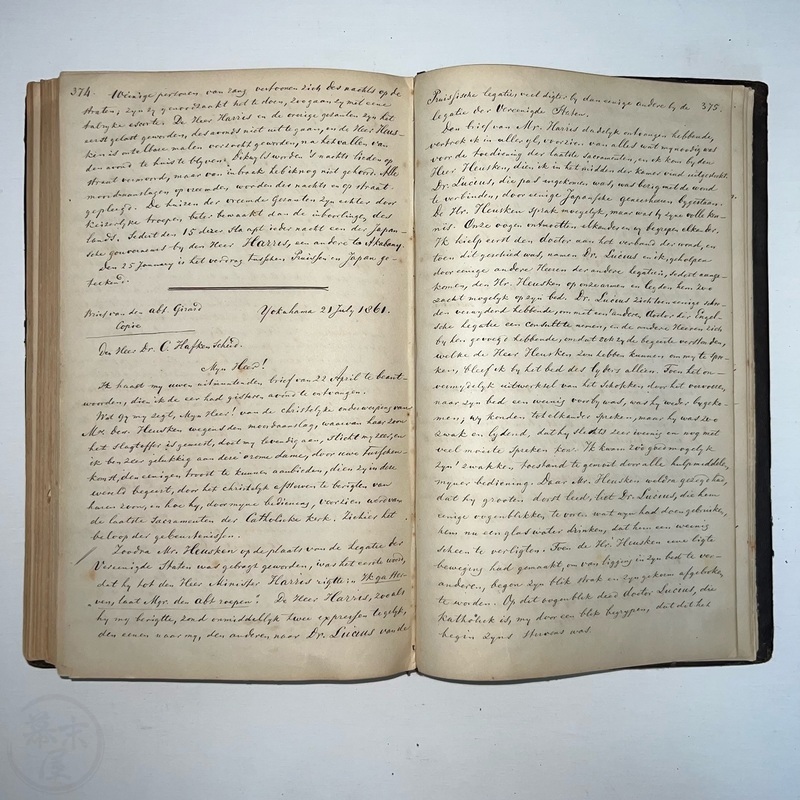 374. Weinige personen van rang vertoonen zich des nachts op de
straten; zyn zy genoodzaakt het te doen, zoo gaan zy met eene
talryke escorte. De Heer Harris en de overige gezanten zyn het
eerst gelast geworden, des avonds niet uit te gaan, en de Heer Heus-
ken is ontelbare malen verzocht geworden, na het vallen van
den avond te huis te blyven. Dikwyls worden 's nachts lieden op
straat vermoord, maar van inbraak heb ik nog niet gehoord. Alle
moordaanslagen op vreemden worden des nachts en op straat
gepleegd. De huizen der vreemde Gezanten zyn echter door
keizerlyke troepen beter bewaakt dan de inboorlingen des
lands. Sedert den 15 dezer sta apt ieder nacht een der Japan-
sche gouverneurs by den Heer Harris, een andere te Akabany.
Den 25 January is het verdrag tusschen Pruissen en Japan ge-
teekend.
Brief van den abt Girard
Copie
Yokuhama 21 July 1861.
Den Heer Dr. C. Hafkenscheid.
Myn Heer!
Ik haast my uwen uitmuntenden brief van 22 April te beant-
woorden, dien ik de eer had gisteren avond te ontvangen.
Wat gy my zegt, Myn Heer! van de christelyke onderwerping van
Mw. de We. Heusken wegens den moordaanslag, waarvan haar zoon
het slagtoffer is geweest, doet my levendig aan, sticht my zeer, en
ik ben zeer gelukkig aan deze vrome dame, door uwe tusschen-
komst, den eenigen troost te kunnen aanbieden, dien zy in deze
wereld begeert, door het christelyk afsterven te berigten van
haren zoon, en hoe hy, door myne bediening, voorzien werd van
de laatste Sacramenten der Catholieke kerk. Ziehier het
beloop der gebeurtenissen.
Zoodra Mr. Heusken op de plaats van de legatie der
Vereenigde Staten was gebragt geworden, was het eerste woord,
dat hy tot den Heer Minister Harris rigtte: Ik ga ster-
ven, laat Mgr. den abt roepen! De Heer Harris, zoo als
hy my berigtte, zond onmiddellyk twee expressen te gelyk,
den eenen naar my, den anderen naar Dr. Lucius van de
Pruissische legatie, veel digter by dan eenige andere by de 375.
legatie der Vereenigde Staten.
Den brief van Mr. Harris dadelyk ontvangen hebbende,
vertrok ik in aller yl, voorzien van alles wat my noodig was
voor de toediening der laatste sacramenten, en ik kom by den
Heer Heusken, dien ik in het midden der kamer vind uitgestrekt.
Dr. Lucius, die pas aangekomen was, was bezig met de wond
te verbinden, door eenige Japansche geneesheeren bygestaan.
De Hr. Heusken sprak mogelyk, maar was by zyne volle ken-
nis. Onze oogen ontmoetten elkander en wy begrepen elkander.
Ik hielp eerst den doctor aan het verband der wond, en
toen dit geschied was, namen Dr. Lucius en ik, geholpen
door eenige andere Heeren der andere legatien, sedert aange-
komen, den Hr. Heusken op onze armen en legden hem zoo
zacht mogelyk op zyn bed. Dr. Lucius zich toen eenige schre-
den verwyderd hebbende, om met een anderen doctor der Engel-
sche legatie een consult te nemen, en de andere Heeren zich
by hen gevoegd hebbende, om dat ook zy de begeerte verstonden,
welke de Heer Heusken zou hebben kunnen om my te spre-
ken, bleef ik by het bed des lyders alleen. Toen het on-
vermydelyk uitwerksel van het schokken, door het vervoeren
naar zyn bed een weinig voorby was, was hy weder bygeko-
men; wy konden tot elkander spreken, maar hy was zoo
zwak en lydend, dat hy slechts zeer weinig en nog met
veel moeite spreken kon. Ik kwam zoo goed mogelyk
zyn' zwakken toestand te gemoet door alle hulpmiddelen
myner bediening. Daar Mr. Heusken weldra gezegd had,
dat hy grooten dorst leed, liet Dr. Lucius, die hem
eenige oogenblikken te voren wat wyn had doen gebruiken,
hem nu een glas water drinken, dat hem een weinig
scheen te verligten. Toen de Hr. Heusken eene ligte
beweging had gemaakt, om van ligging in zyn bed te ver-
anderen, begon zyn blik strak en zyn gelaat afgebroken
te worden. Op dit oogenblik deed doctor Lucius, die
katholiek is, my door een blik begrypen, dat dit het
begin zyns stervens was.